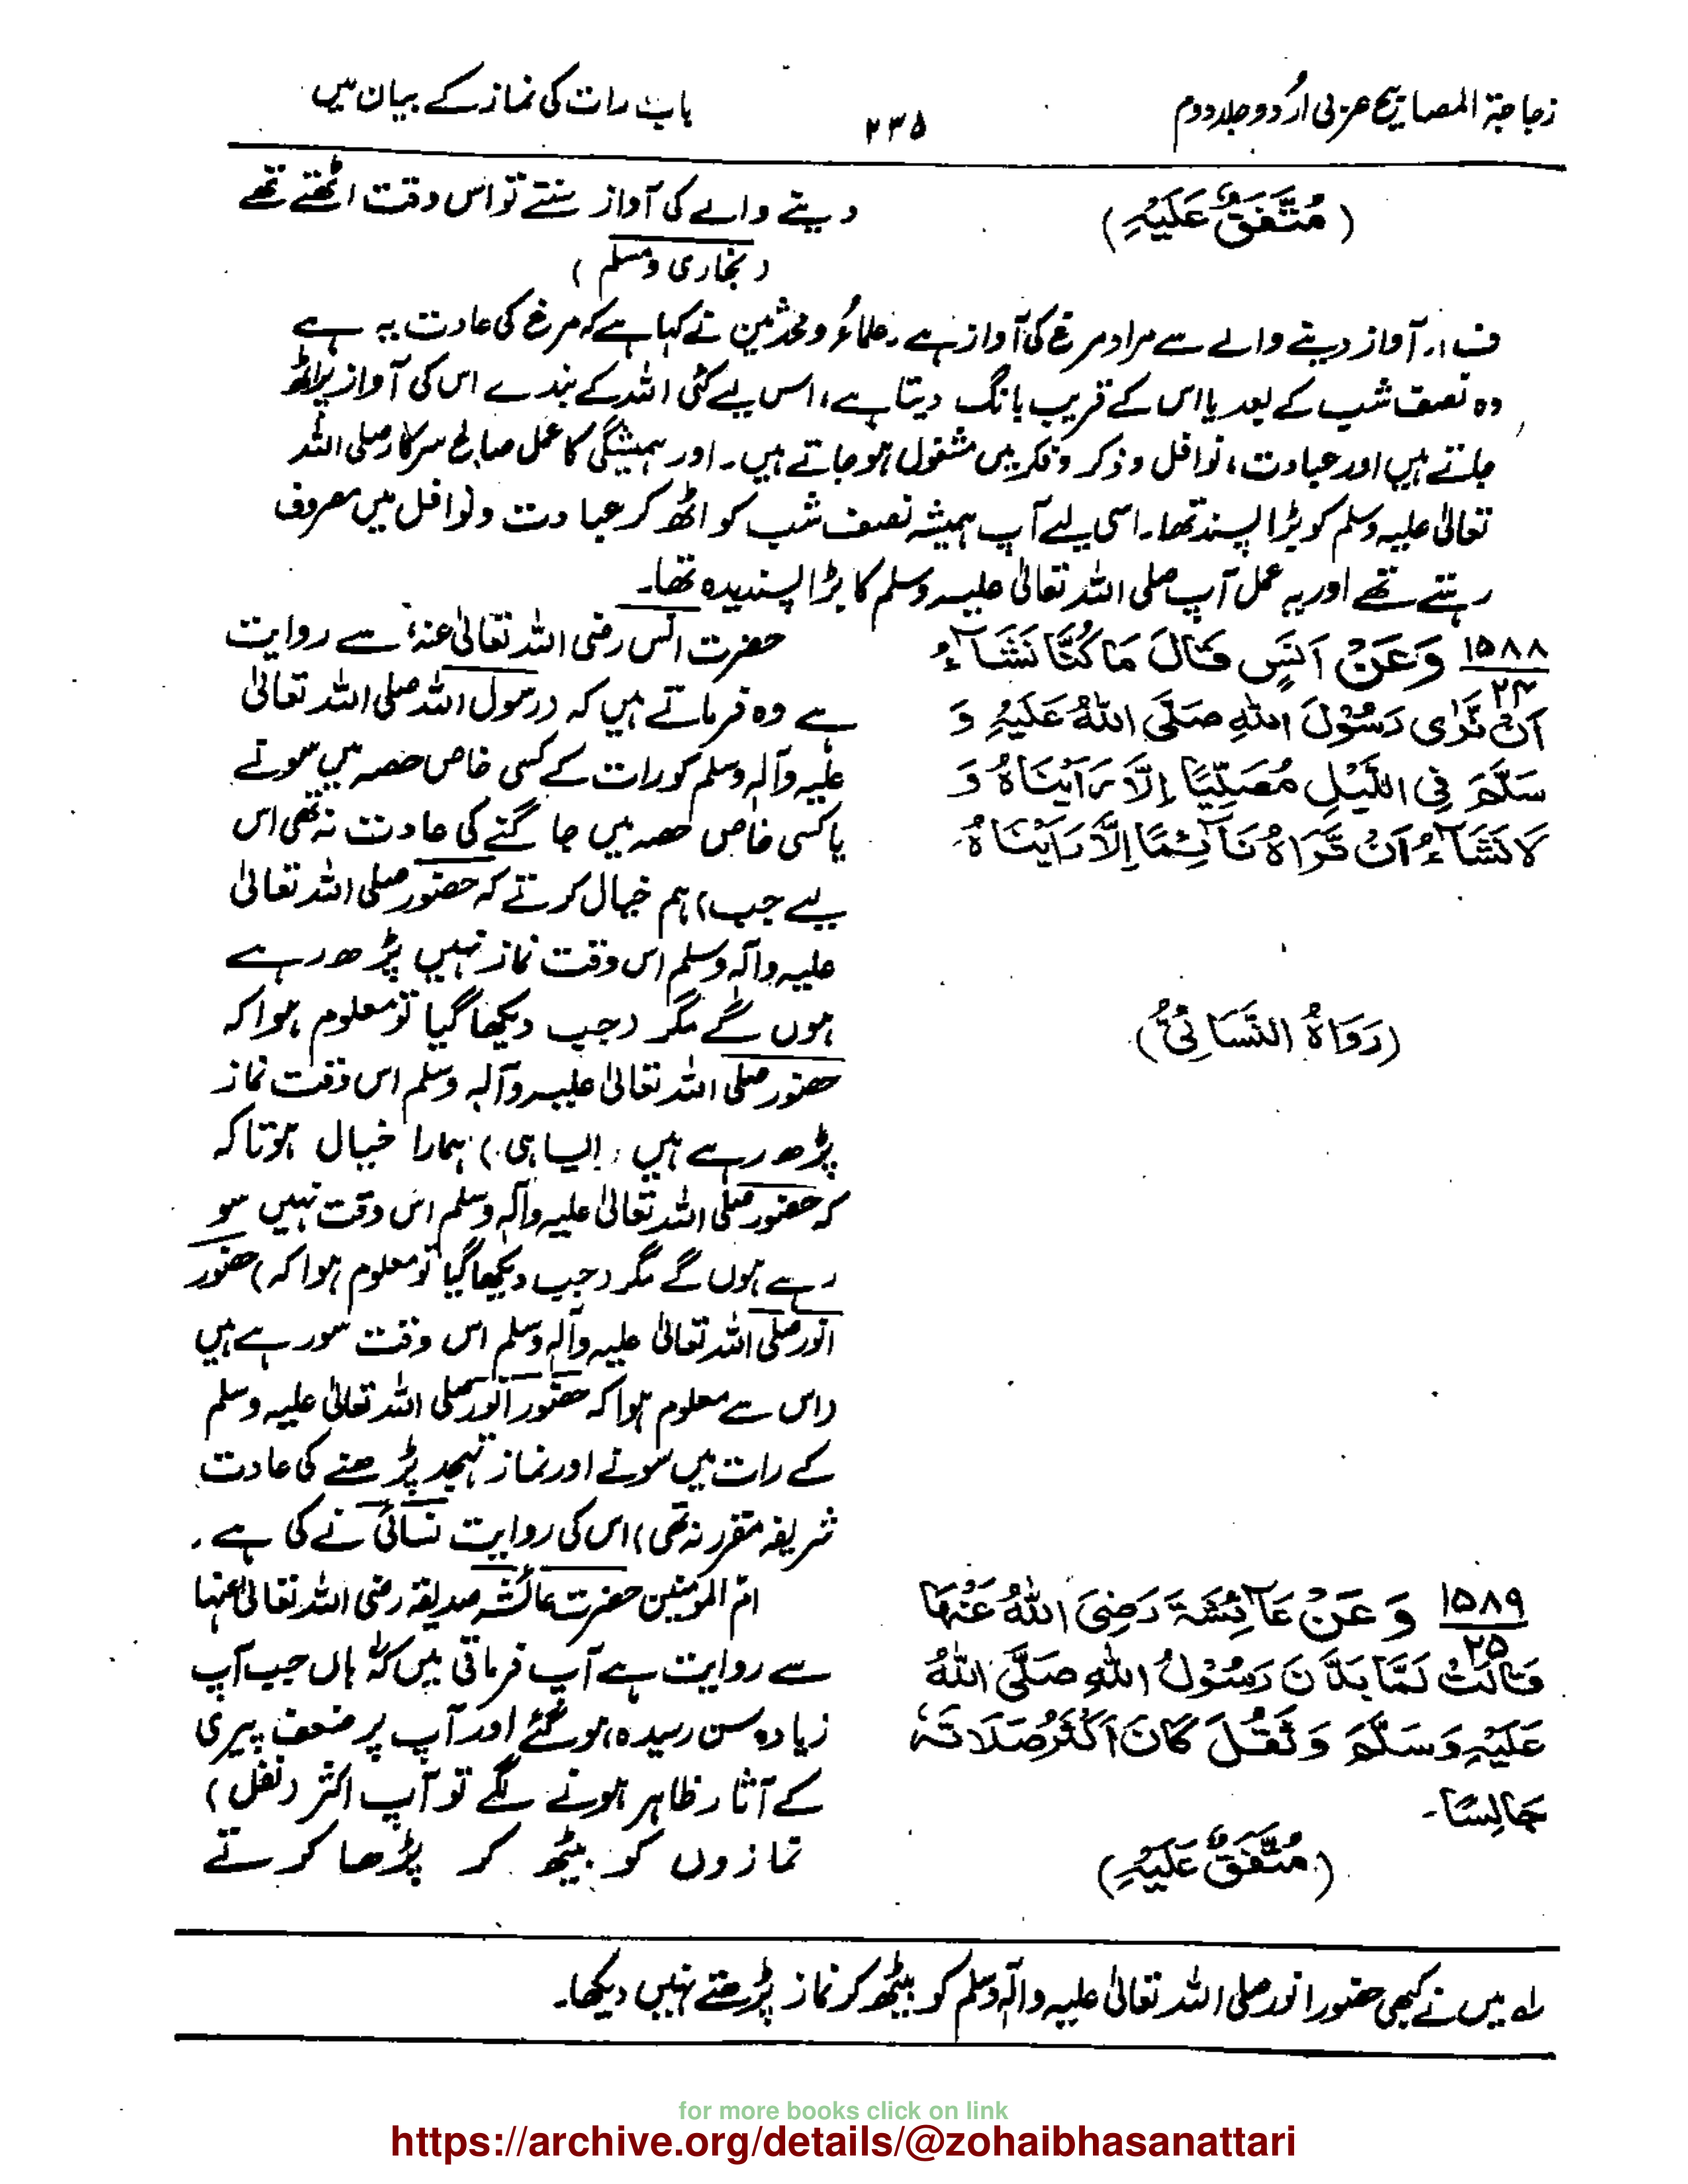 زجاجۃ المصابیح عربی اُردو جلد دوم
۲۳۵
باب رات کی نماز کے بیان میں
(مُتَّفَقٌ عَلَيْہِ)
دینے والے کی آواز سنتے تو اس وقت اٹھتے تھے
(بخاری ومسلم)
ف:۔ آواز دینے والے سے مراد مرغ کی آواز ہے۔ علماء و محدثین نے کہا ہے کہ مرغ کی عادت یہ ہے
وہ نصف شب کے بعد یا اس کے قریب بانگ دیتا ہے، اس لیے کئی اللہ کے بندے اس کی آواز پر اٹھ
جاتے ہیں اور عبادت، نوافل و ذکر و فکر میں مشغول ہو جاتے ہیں۔ اور ہمیشگی کا عمل صالح سرکار صلی اللہ
تعالیٰ علیہ وسلم کو بڑا پسند تھا۔ اسی لیے آپ ہمیشہ نصف شب کو اٹھ کر عبادت و نوافل میں معروف
رہتے تھے اور یہ عمل آپ صلی اللہ تعالیٰ علیہ وسلم کا بڑا پسندیدہ تھا۔
۱۵۸۸
۲۴
وَعَنْ اَنَسٍ قَالَ مَا كُنَّا نَشَآءُ
اَنْ نَّرٰى رَسُوْلَ اللّٰهِ صَلَّى اللّٰهُ عَلَيْہِ وَ
سَلَّمَ فِى اللَّيْلِ مُصَلِّيًا اِلَّا رَاَيْنَاهُ وَ
لَا نَشَآءُ اَنْ نَّرَاهُ نَآئِمًا اِلَّا رَاَيْنَاهُ
(رَوَاهُ النَّسَائِیُّ)
حضرت انس رضی اللہ تعالیٰ عنہ سے روایت
ہے وہ فرماتے ہیں کہ (رسول اللہ صلی اللہ تعالیٰ
علیہ وآلہ وسلم کو رات کے کسی خاص حصہ میں سونے
یا کسی خاص حصہ میں جاگنے کی عادت نہ تھی اس
لیے جب) ہم خیال کرتے کہ حضور صلی اللہ تعالیٰ
علیہ وآلہ وسلم اس وقت نماز نہیں پڑھ رہے
ہوں گے مگر (جب دیکھا گیا تو معلوم ہوا کہ
حضور صلی اللہ تعالیٰ علیہ وآلہ وسلم اس وقت نماز
پڑھ رہے ہیں، (ایسا ہی) ہمارا خیال ہوتا کہ
کہ حضور صلی اللہ تعالیٰ علیہ وآلہ وسلم اس وقت نہیں سو
رہے ہوں گے مگر (جب دیکھا گیا تو معلوم ہوا کہ) حضور
انور صلی اللہ تعالیٰ علیہ وآلہ وسلم اس وقت سو رہے ہیں
(اس سے معلوم ہوا کہ حضور انور صلی اللہ تعالیٰ علیہ وسلم
کے رات میں سونے اور نماز تہجد پڑھنے کی عادت
شریفہ مقرر نہ تھی) اس کی روایت نسائی نے کی ہے۔
۱۵۸۹
۲۵
وَعَنْ عَآئِشَۃَ رَضِىَ اللّٰهُ عَنْہَا
قَالَتْ لَمَّا بَدَّنَ رَسُوْلُ اللّٰهِ صَلَّى اللّٰهُ
عَلَيْہِ وَسَلَّمَ وَثَقُلَ كَانَ اَكْثَرُ صَلَاتِهٖ
جَالِسًا۔
(مُتَّفَقٌ عَلَيْہِ)
ام المؤمنین حضرت عائشہ صدیقہ رضی اللہ تعالیٰ عنہا
سے روایت ہے آپ فرماتی ہیں کہ ہاں جب آپ
زیادہ سن رسیدہ ہو گئے اور آپ پر ضعف پیری
کے آثار ظاہر ہونے لگے تو آپ اکثر (نفل)
نمازوں کو بیٹھ کر پڑھا کرتے
لہ میں نے کبھی حضور انور صلی اللہ تعالیٰ علیہ وآلہ وسلم کو بیٹھ کر نماز پڑھتے نہیں دیکھا۔
for more books click on link
https://archive.org/details/@zohaibhasanattari